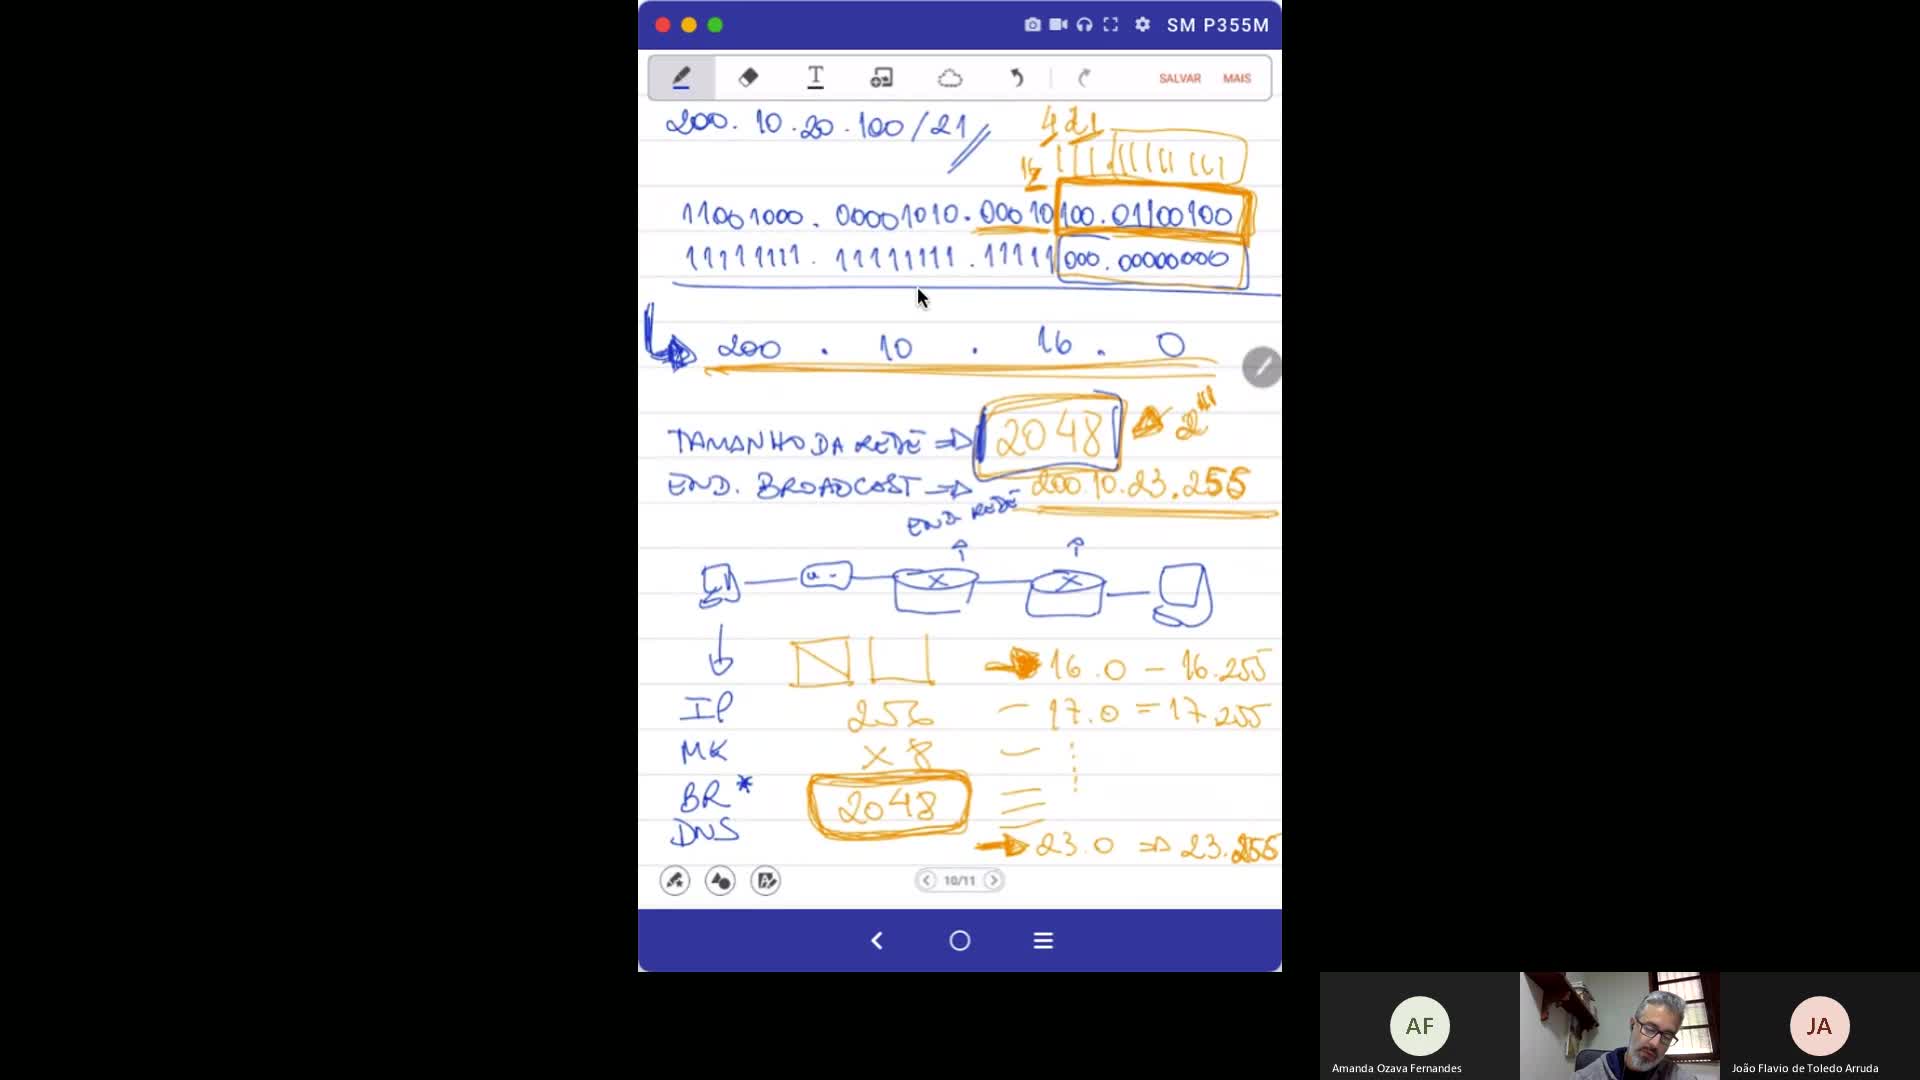 SM P355M
T SALVAR MAIS
200.10.20.100/21
421
16
11001000.00001010.00010100.01100100
11111111.11111111.11111000.00000000
200 . 10 . 16 . 0
TAMANHO DA REDE ⇒ 2048 2¹¹
END. BROADCAST ⇒ 200.10.23.255
END REDE
16.0 - 16.255
IP 256 - 17.0 = 17.255
MK x 8
BR* 2048
DNS 23.0 ⇒ 23.255
10/11
AF JA
Amanda Ozava Fernandes João Flavio de Toledo Arruda